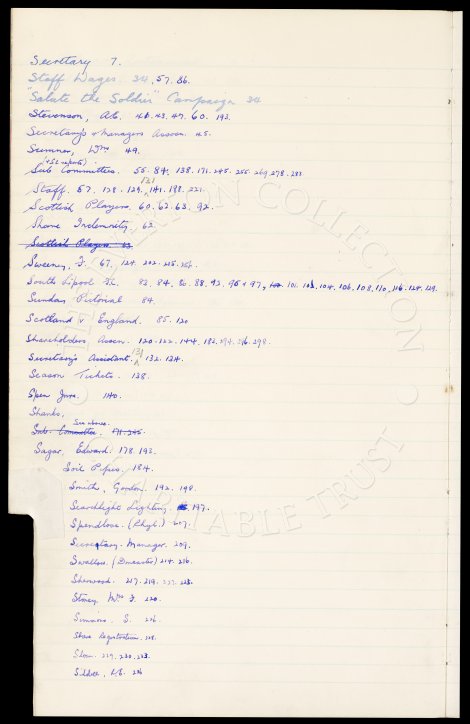 Secretary 7.
Staff Wages. 34, 57. 86.
"Salute the Soldier" Campaign 34
Stevenson, A.E. 40. 43. 47. 60. 193.
Secretary's & Managers Assocn. 45.
Sumner, Wm 49.
(& S.L. reports)
Sub Committees. 55. 84. 138. 171. 245. 255. 269. 278. 283
131
Staff. 57. 128. 129. 141. 198. 221.
Scottish Players. 60. 62. 63. 92.
Shane Indemnity. 63.
Scottish Players. 63
Sweeney, F. 67. 124. 202. 205.
South Lpool F.C. 82, 84, 86. 88. 92, 95 & 97, 101. 103, 104. 106, 108, 110, 116. 124. 129.
Sunday Pictorial 84.
Scotland v England. 85. 120
Shareholders Assocn. 120. 122. 144. 182. 294. 296. 298.
131
Secretary's Assistant. 132. 134.
Season Tickets. 138.
140.
Shanks,
See above.
Sub. Committee. 171. 245.
Sagar, Edward. 178. 193.
Soil Pipes. 184.
Smith, Gordon. 192. 198.
Searchlight Lighting. 197.
Spendlove. (Rhyl.) 207.
Secretary-Manager. 209.
Swallow. (Doncaster) 214. 216.
Sherwood. 217. 219. 227. 228.
Storey, Mrs F. 220.
Simmons, S. 226.
Share Registration. 228.
219. 220. 223.
226
THE EVERTON COLLECTION
CHARITABLE TRUST